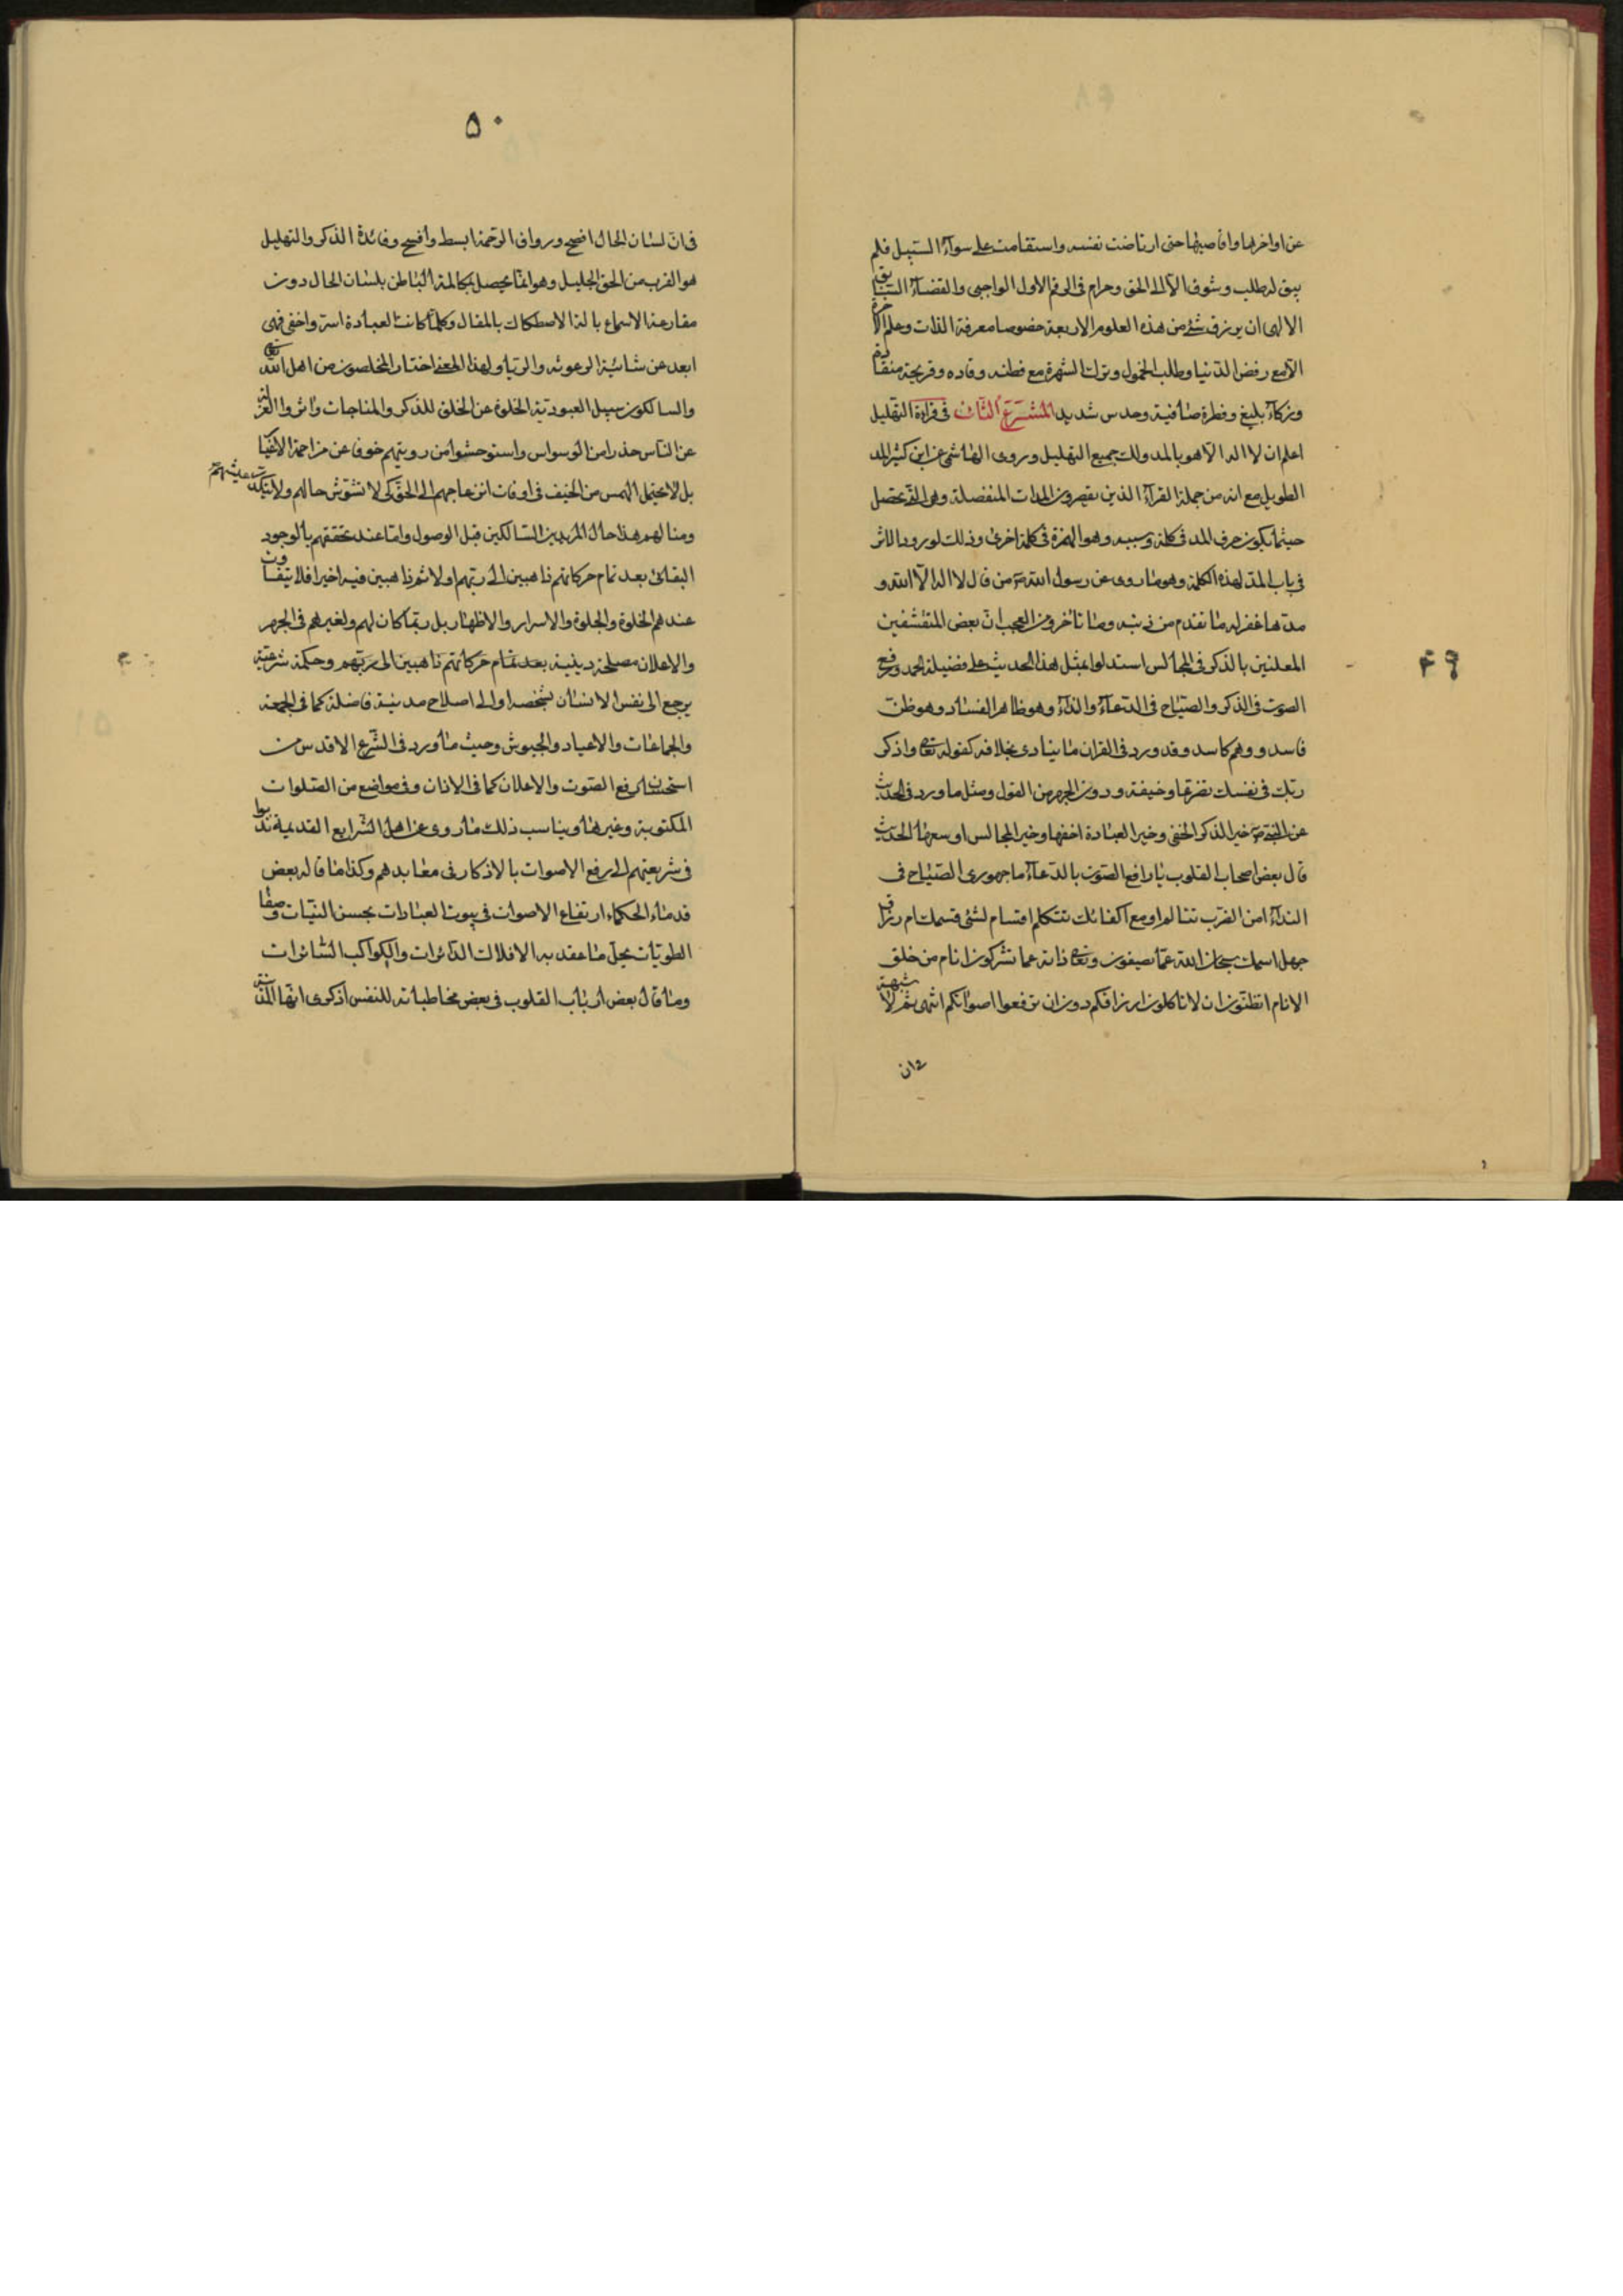 عن اواخرها واقاصيها حتى ارتاضت نفسه واستقامت على سوآء السّبيل فلم
يبق له طلب وشوق الّا الى الحق وحرام فى الرقم الاول الواجبى والقضآء السّابق
الالهى ان يرزق شئ من هذه العلوم الاربعة خصوصا معرفة الذات وعلم الآخرة
الّا مع رفض الدّنيا وطلب الخمول وترك الشهرة مع فطنه وقاده وقريحة منقاده
وزكآء بليغ وفطرة صافية وحدس شديد المشرع الثّانى فى قرائة التهليل
اعلم ان لا اله الّا هو بالمد ولك جميع التهليل وروى الهاشمى عن ابن كثير المد
الطويل مع انه من جملة القرآء الذين يقصرون المدات المنفصلة وهى التى تحصل
حيثما يكون حرف المد فى كلمة وسببه وهو الهمزة فى كلمة اخرى وذلك لورود الاثر
فى باب المد لهذه الكلمة وهو ما روى عن رسول الله ص من قال لا اله الّا الله و
مدّها غفر له ما تقدم من ذنبه وما تاخر ومن العجب انّ بعض المتقشفين
المعلنين بالذكر فى المجالس استدلوا بمثل هذا الحديث على فضيلة الجهر ورفع
الصوت فى الذكر والصّياح فى الدعآء والندآء وهو ظاهر الفساد وهو ظن
فاسد ووهم كاسد وقد ورد فى القران ما ينادى بخلافه كقوله تعا واذكر
ربّك فى نفسك تضرعا وخيفة ودون الجهر من القول ومثل ما ورد فى الحديث
عن النبى ص خير الذكر الخفى وخير العبادة اخفها وخير المجالس اوسعها الحديث
قال بعض اصحاب القلوب يا رافع الصّوت بالدّعآء ما جهورى الصّياح فى
الندآء امن القرب تتالم او مع اكفائك تتكلم اقتسام لشئ قسمك ام رزاقك
جهل اسمك سبحان الله عمّا يصفون وتعا ذاته عما تشركون انام من خلق
الانام اتظنّون ان لا تاكلون ارزاقكم دون ان ترفعوا اصواتكم انتهى ثم لا شبهة
فى ان
۴۹
۵۰
فى انّ لسان الحال افصح ورواق الرّحمة ابسط وافسح وفائدة الذكر والتهليل
هو القرب من الحق الجليل وهو انّما يحصل بمكالمة الباطن بلسان الحال دون
مقارعة الاسماع بالة الاصطكاك بالمقال وكلّما كانت العبادة استر واخفى فهى
ابعد عن شائبة الرعونه والريآء ولهذا المعنى اختار المخلصون من اهل الله تعالى
والسالكون سبيل العبودية الخلوة عن الخلق للذكر والمناجات واثروا العزلة
عن النّاس حذرا من الوسواس واستوحشوا من رويتهم خوفا عن مزاحمة الاغيا
بل لا يحتمل الهمس من الخفيف فى اوقات انزعاجهم الى الحق كى لا تشوّش حالهم ولا يتكدّر عيشهم
ومنالهم هذا حال المريدين السّالكين قبل الوصول وامّا عند تحققهم بالوجود
البقائى بعد تمام حركاتهم ذاهبين الى ربّهم اولا ثم ذاهبين فيه اخيرا فلا يتفاوت
عندهم الخلوة والجلوة والاسرار والاظهار بل ربّما كان لهم ولغيرهم فى الجهر
والاعلان مصلحة دينية بعد تمام حركاتهم ذاهبين الى ربّهم وحكمة شرعيّة
يرجع الى نفس الانسان بشخصه او الى اصلاح مدينة فاضلة كما فى الجمعة
والجماعات والاعياد والجيوش وحيث ما ورد فى الشّرع الاقدس من
استحسان رفع الصّوت والاعلان كما فى الاذان وفى مواضع من الصّلوات
المكتوبة وغيرها ويناسب ذلك ما روى عن اهل الشّرايع القديمة ندبوا
فى شريعتهم الى رفع الاصوات بالاذكار فى معابدهم وكذا ما قاله بعض
قدماء الحكماء ارتفاع الاصوات فى بيوت العبادات بحسن النيّات وصفا
الطويات يحلّ ما عقد به الافلاك الدّائرات والكواكب السّائرات
وما قال بعض ارباب القلوب فى بعض مخاطباته للنفس اذكرى ايّتها